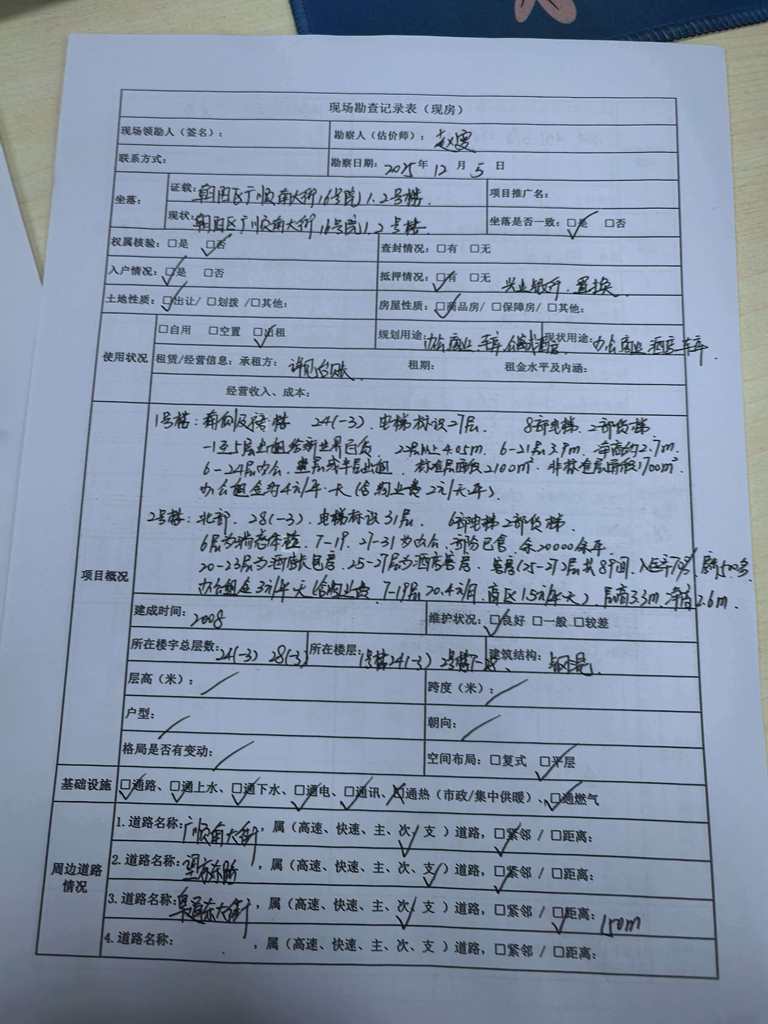 现场勘查记录表（现房）
现场领勘人（签名）： 勘察人（估价师）：
联系方式： 勘察日期：2025年12月5日
坐落： 证载：朝阳区广顺南大街16号院1.2号楼 项目推广名：
现状：朝阳区广顺南大街16号院1.2号楼 坐落是否一致：☑是 □否
权属核验：□是 ☑否 查封情况：□有 □无
入户情况：☑是 □否 抵押情况：☑有 □无 兴业银行.置换
土地性质：☑出让/ □划拨 /□其他： 房屋性质：☑商品房/ □保障房/ □其他：
使用状况 □自用 □空置 ☑出租 规划用途：办公商业 车库 现状用途：办公商业 酒店 车库
租赁/经营信息：承租方：详见台账 租期： 租金水平及内涵：
经营收入、成本：
项目概况
1号楼：南侧 24(-3). 电梯标识27层. 8部电梯 2部货梯
-1至5层出租给新世界百货 4.05m. 6-21层3.9m. 净高约2.7m.
6-24层办公. 整层或半层出租. 标准层面积2100m². 非标准层面积1700m²
办公租金约4元/㎡·天(含物业费 2元/天㎡).
2号楼：北部. 28(-3). 电梯标识31层. 6部电梯2部货梯.
6层为 7-19. 27-31为办公. 部分已售. 余20000余㎡.
20-23层为酒店 25-27层为酒店客房. 客房(25-27)层共89间.
办公租金3元/㎡天(含物业费. 7-19层 20.4元/月. 商区1.5元/㎡天). 层高3.3m.净高2.6m.
建成时间：2008 维护状况：☑良好 □一般 □较差
所在楼宇总层数：24(-3) 28(-3) 所在楼层：1号楼24(-3) 2号楼 建筑结构：钢混
层高（米）：/ 跨度（米）：/
户型：/ 朝向：/
格局是否有变动：/ 空间布局：□复式 ☑平层
基础设施 ☑通路、☑通上水、☑通下水、☑通电、☑通讯、☑通热（市政/集中供暖）、☑通燃气
周边道路情况
1.道路名称：广顺南大街，属（高速、快速、主、次✓支）道路，☑紧邻 / □距离：
2.道路名称：望京东路，属（高速、快速、主、次、支✓）道路，☑紧邻 / □距离：
3.道路名称：阜通东大街，属（高速、快速、主、次✓支）道路，□紧邻 / ☑距离：150m
4.道路名称： ，属（高速、快速、主、次、支）道路，□紧邻 / □距离：